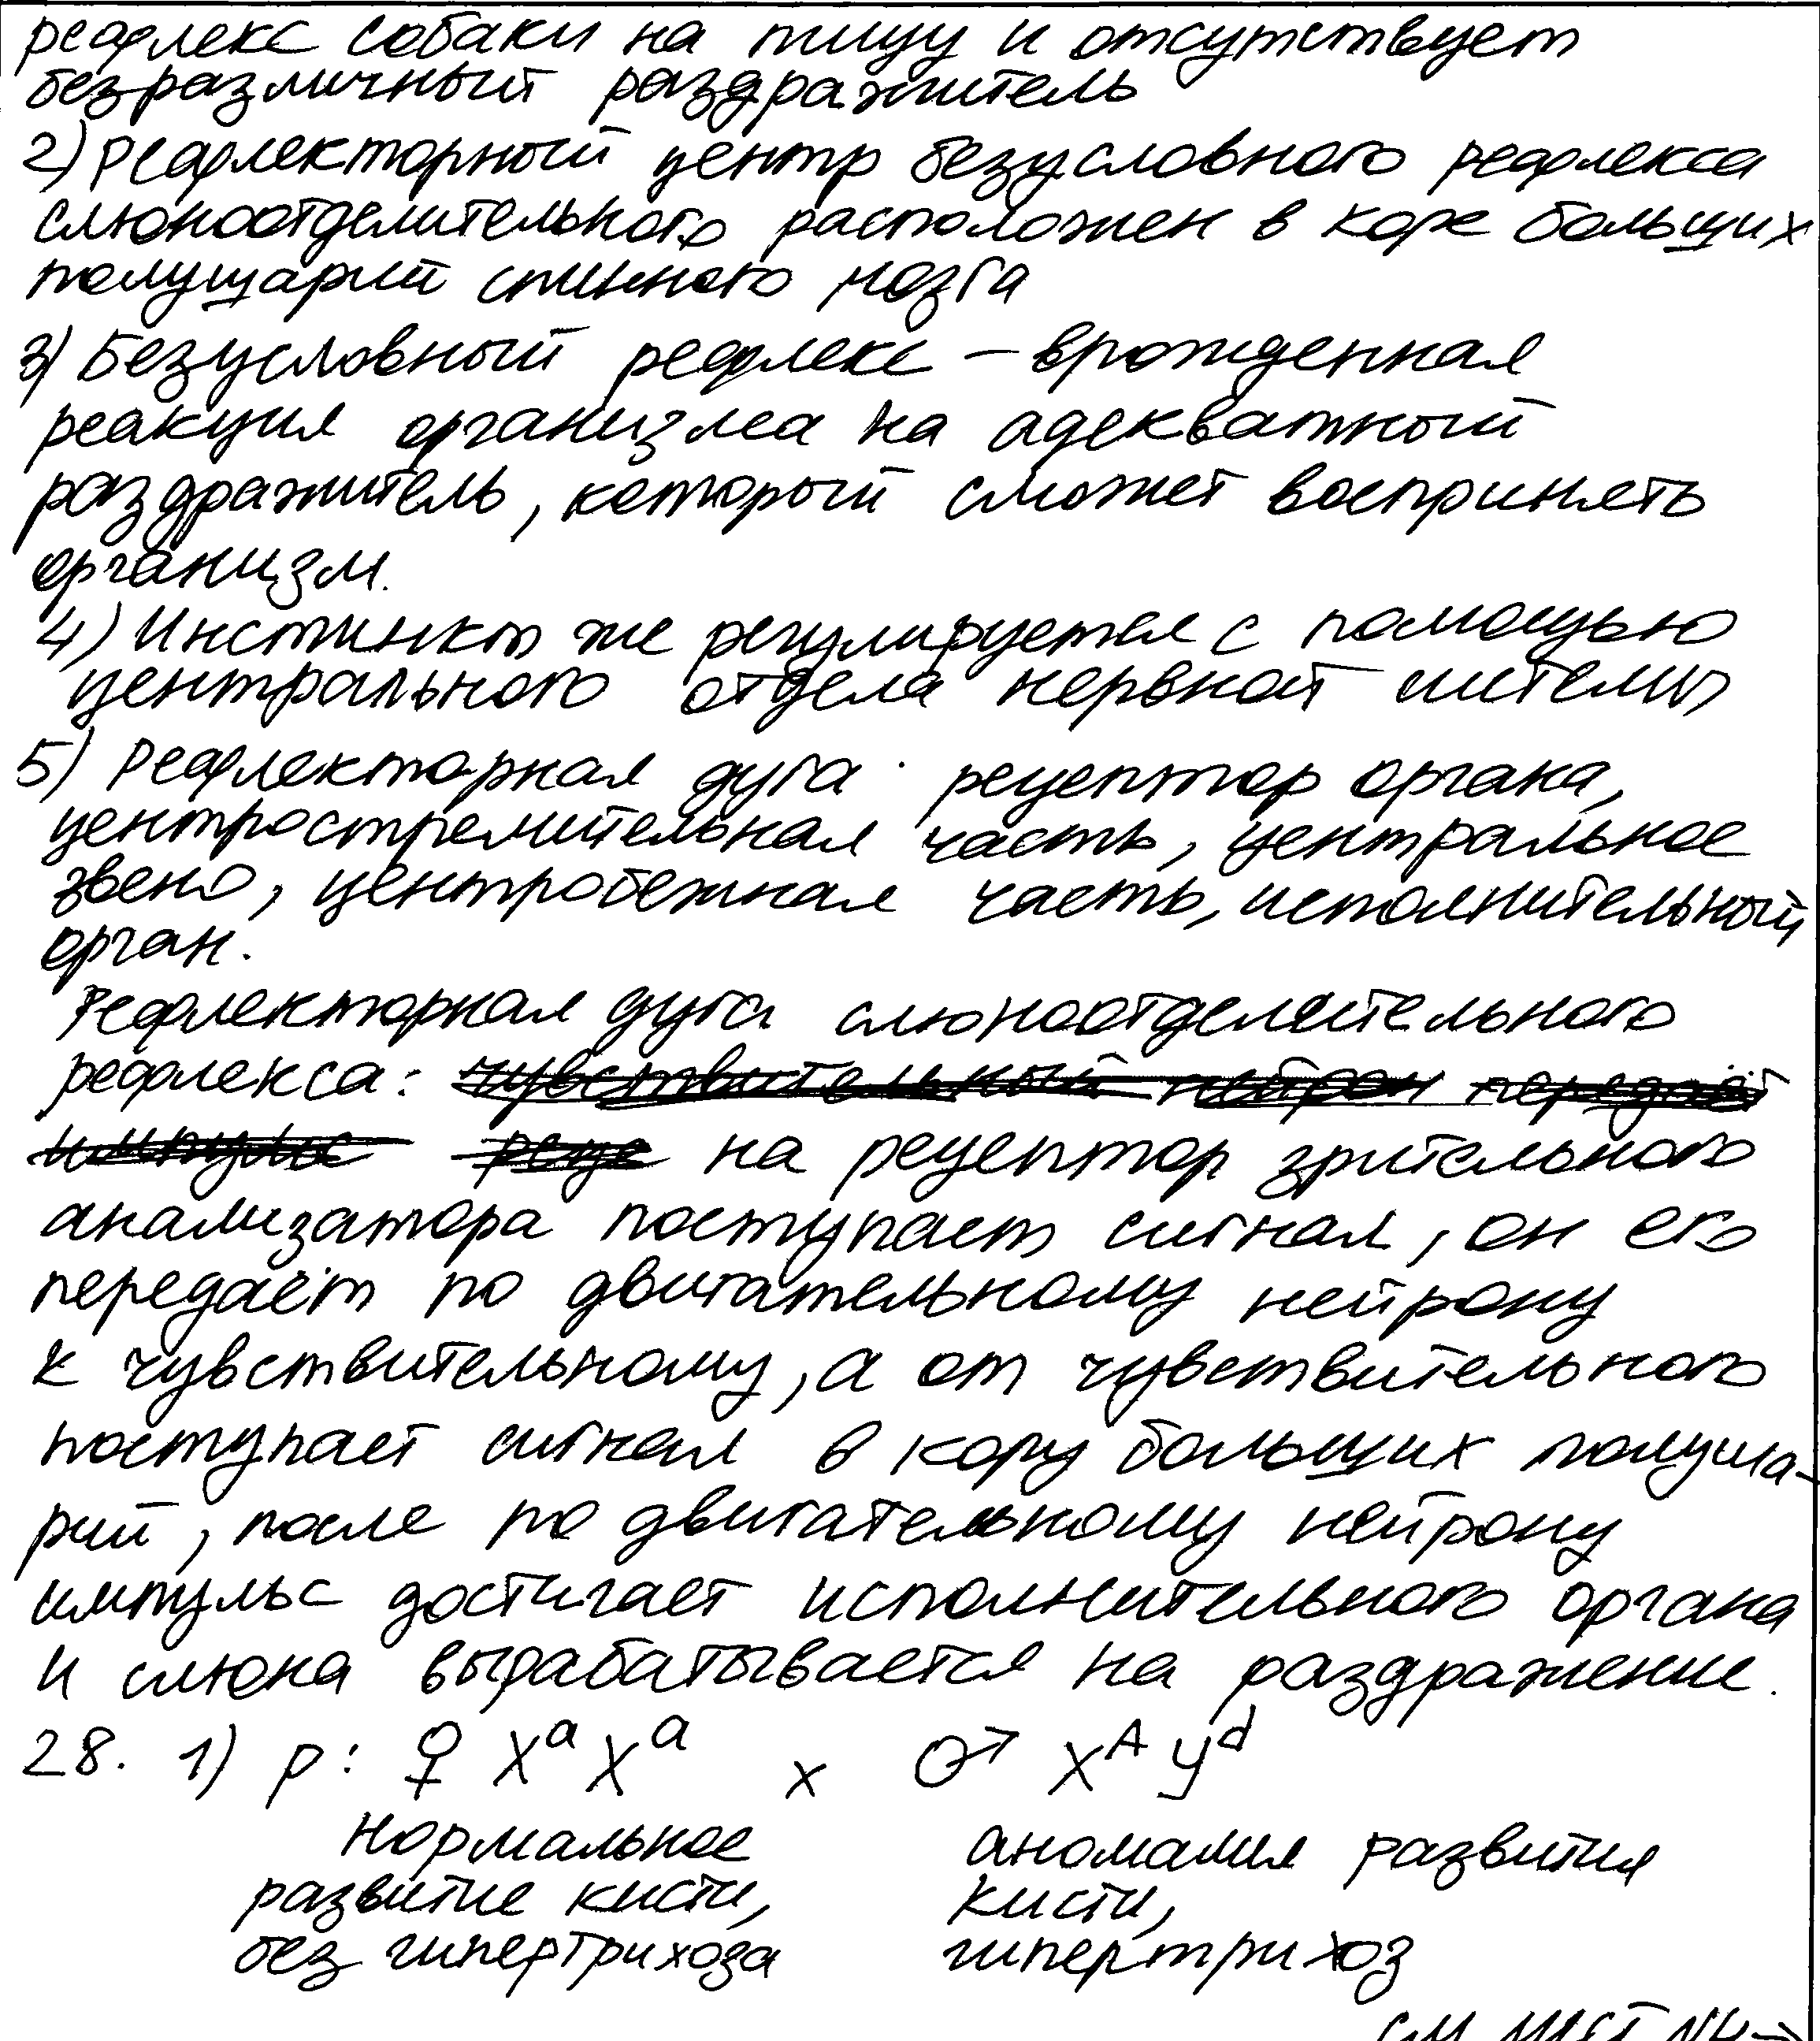 рефлекс собаки на пищу и отсутствует
безразличный раздражитель
2) Рефлекторный центр безусловного рефлекса
слюноотделительного расположен в коре больших
полушарий спинного мозга
3) Безусловный рефлекс – врожденная
реакция организма на адекватный
раздражитель, который сможет воспринять
организм.
4) Инстинкт же регулируется с помощью
центрального отдела нервной ситемы
5) Рефлекторная дуга: рецептор органа,
центростремительная часть, центральное
звено, центробежная часть, исполнительный
орган.
Рефлекторная дуга слюноотделительного
рефлекса: чувствительный нейрон передаёт
импульс реце на рецептор зрительного
анализатора поступает сигнал, он его
передаёт по двигательному нейрону
к чувствительному, а от чувствительного
поступает сигнал в кору больших полуша-
рий, после по двигательному нейрону
импульс достигает исполнительного органа
и слюна вырабатывается на раздражение.
28. 1) р: ♀ Xᵃ Xᵃ х ♂ Xᴬ Yᵈ
нормальное аномалия развития
развитие кисти, кисти,
без гипертрихоза гипертрихоз